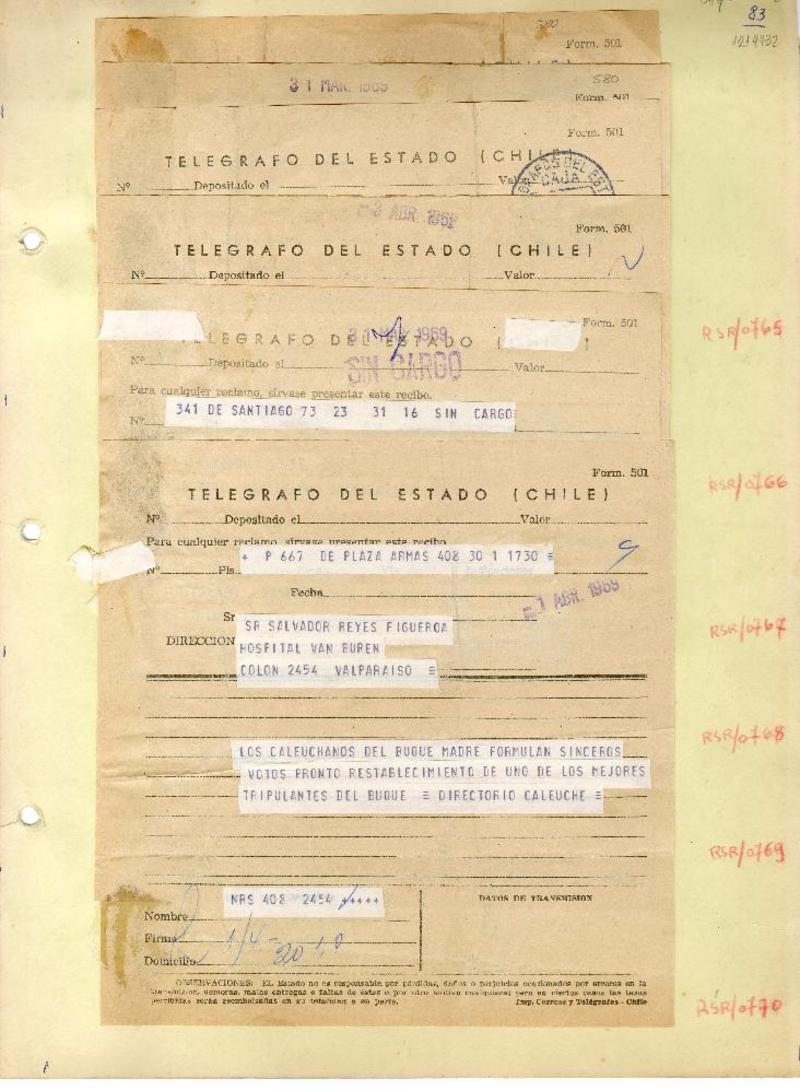 83
1214432
Form. 501
31 MAR. 1969
580
Form. 501
Form. 501
TELEGRAFO DEL ESTADO (CHILE
Nº Depositado el Val
CAJA
ABR. 1969
Form. 501
TELEGRAFO DEL ESTADO (CHILE)
Nº Depositado el Valor
1969
Form. 501
ELEGRAFO DEL ESTADO (
SIN CARGO
Nº Depositado el Valor
RSR/0765
Para cualquier reclamo, sírvase presentar este recibo.
341 DE SANTIAGO 73 23 31 16 SIN CARGO=
Nº
Form. 501
RSR/0766
TELEGRAFO DEL ESTADO (CHILE)
Nº Depositado el Valor
Para cualquier reclamo, sírvase presentar este recibo
+ P 667 DE PLAZA ARMAS 408 30 1 1730 =
Nº Pls
Fecha
1 ABR. 1969
Sr
SR SALVADOR REYES FIGUEROA
RSR/0767
DIRECCION
HOSPITAL VAN BUREN
COLON 2454 VALPARAISO =
RSR/0768
LOS CALEUCHANOS DEL BUQUE MADRE FORMULAN SINCEROS
VOTOS PRONTO RESTABLECIMIENTO DE UNO DE LOS MEJORES
TRIPULANTES DEL BUQUE = DIRECTORIO CALEUCHE =
RSR/0769
NRS 408 2454 +++++
DATOS DE TRANSMISION
Nombre
Firma
1/4
Domicilio
OBSERVACIONES: EL Estado no es responsable por pérdidas, daños o perjuicios ocasionados por errores en la
transmisión, demoras, malas entregas o faltas de éstas o por otro motivo cualquiera; pero en ciertos casos las tasas
percibidas serán reembolsadas en su totalidad o en parte. Imp. Correos y Telégrafos - Chile
RSR/0770